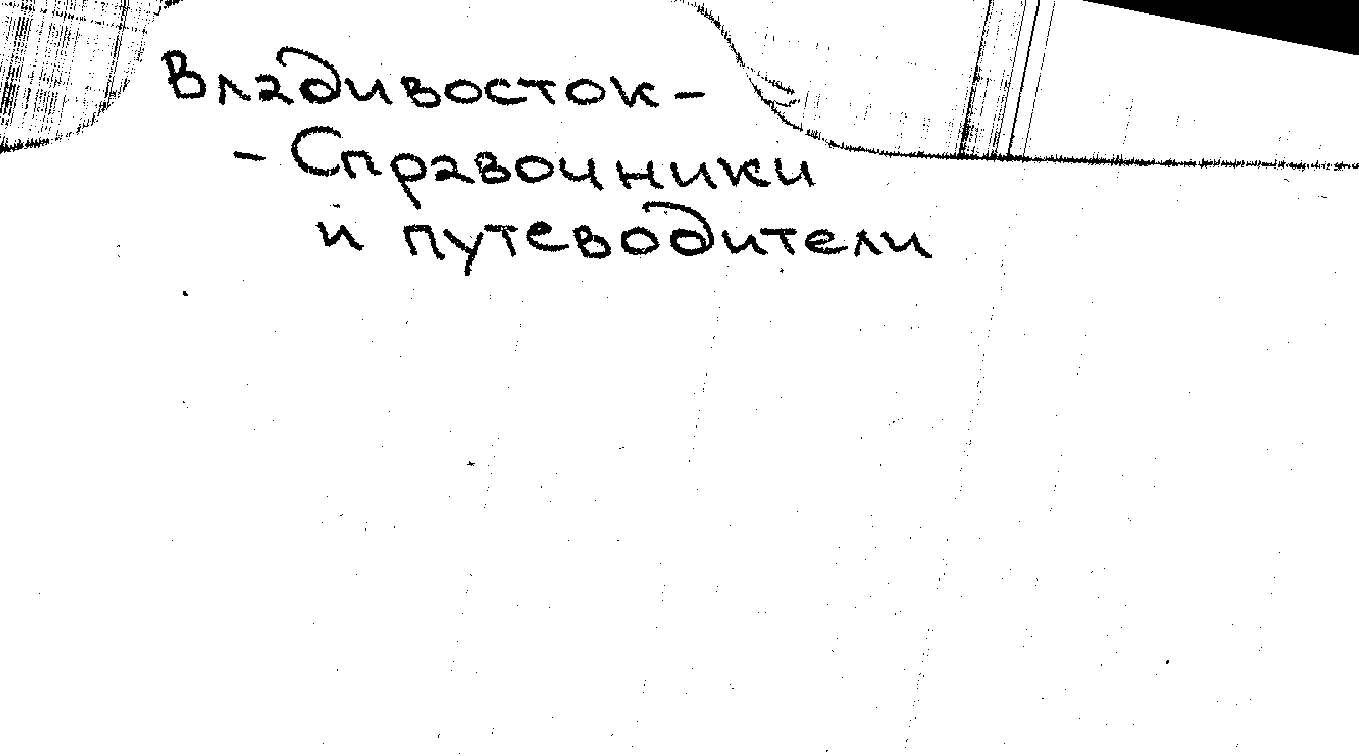 Владивосток -
- Справочники
и путеводители